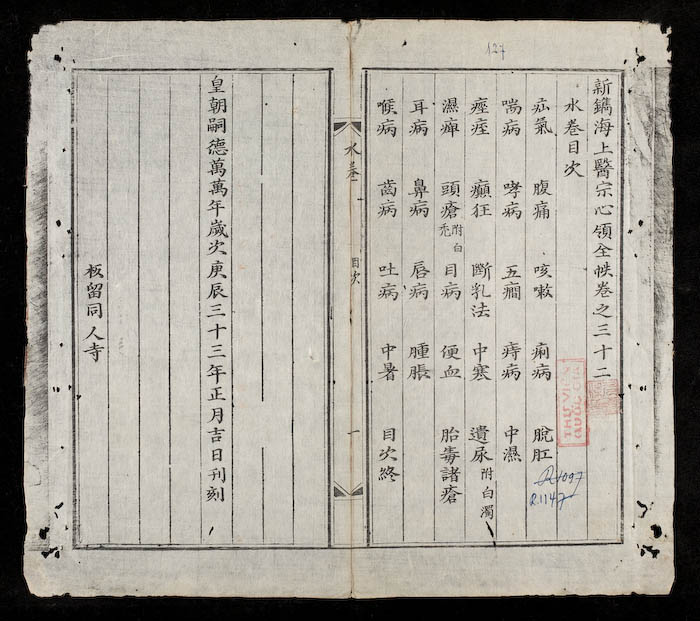 127
新鐫海上醫宗心領全帙卷之三十二
水卷目次
疝氣 腹痛 咳嗽 痢病 脫肛
喘病 哮病 五癎 痔病 中濕
痙痓 癲狂 斷乳法 中寒 遺尿附白濁
濕痺 頭瘡附白禿 目病 便血 胎毒諸瘡
耳病 鼻病 唇病 腫脹
喉病 齒病 吐病 中暑 目次終
THƯ VIỆN
QUỐC GIA
R.1147
水卷 目次 一
皇朝嗣德萬萬年歲次庚辰三十三年正月吉日刊刻
板留同人寺